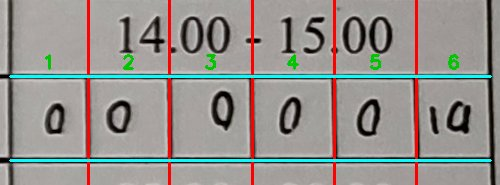 14.00 - 15.00
1 2 3 4 5 6
0 0 0 0 0 10